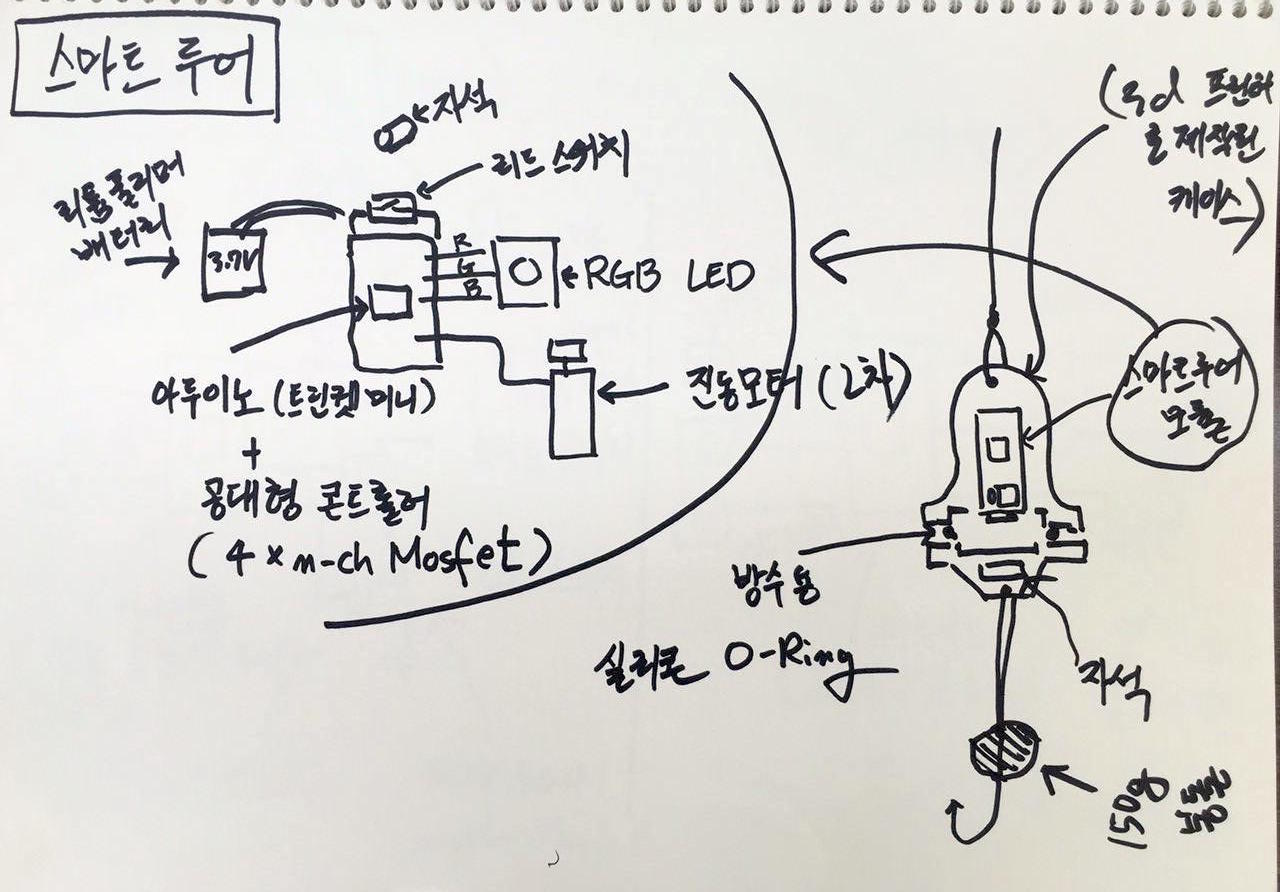 스마트 루어
자석
리드 스위치
리튬폴리머
배터리
3.7V
R
G
B
RGB LED
아두이노 (트린켓 미니)
+
공대형 콘트롤러
(4 × n-ch Mosfet)
진동모터 (2차)
(3d 프린터
로 제작된
케이스)
스마트루어
모듈
방수용
실리콘 O-Ring
자석
150g
봉돌